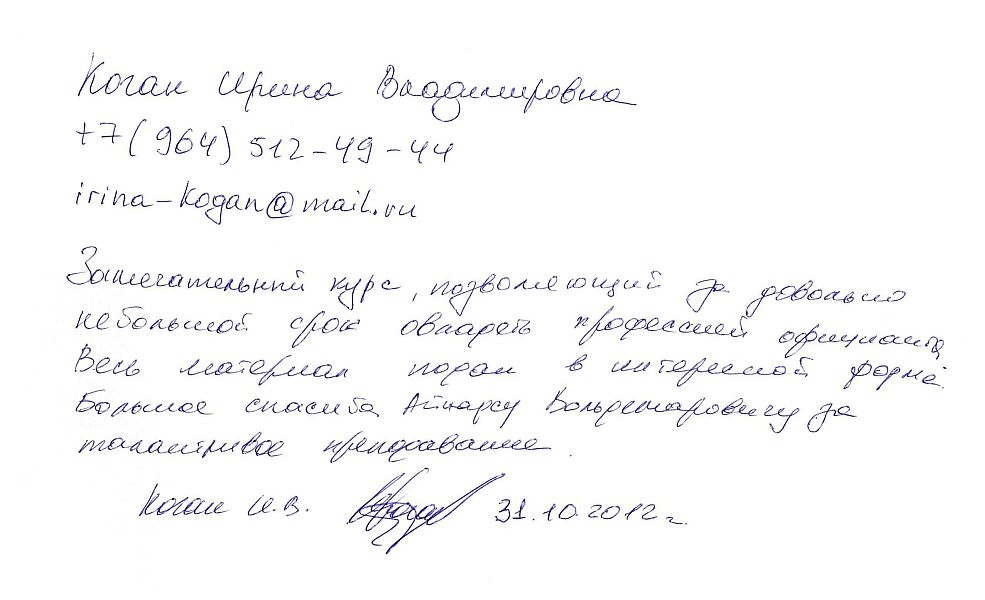 Коган Ирина Владимировна
+7(964) 512-49-44
irina-kogan@mail.ru
Замечательный курс, позволяющий за довольно
небольшой срок овладеть профессией официанта.
Весь материал подан в интересной форме.
Большое спасибо Айнарсу Вольдемаровичу за
талантливое преподавание.
Коган И.В. 31.10.2012 г.